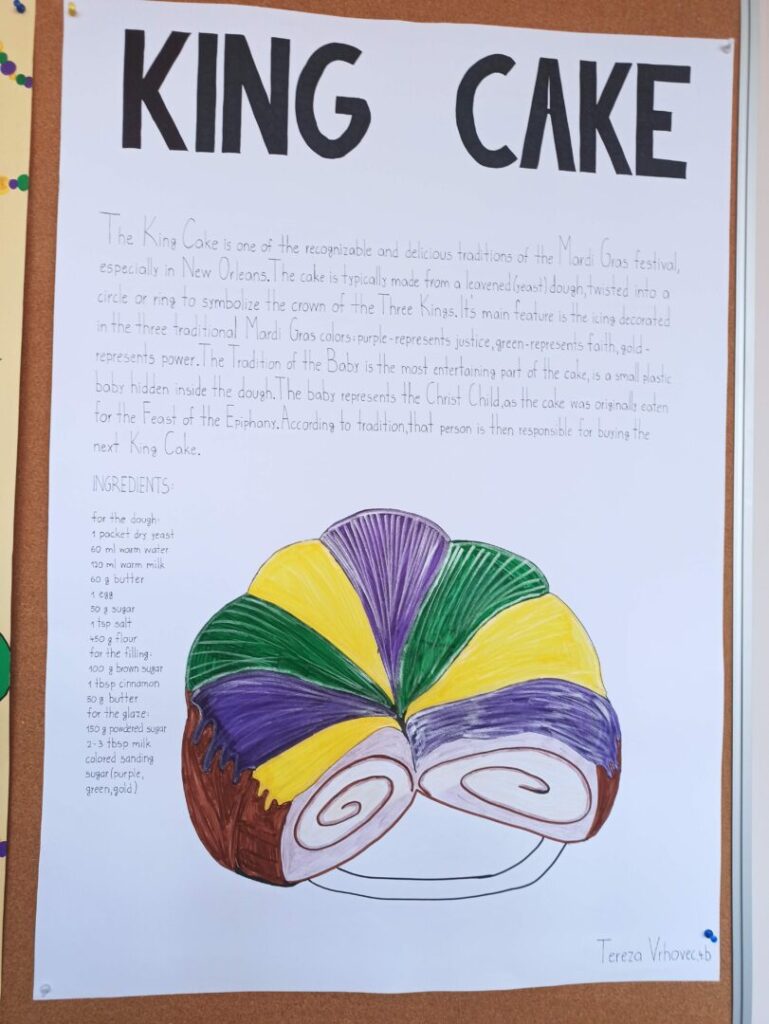 KING CAKE
The King Cake is one of the recognizable and delicious traditions of the Mardi Gras festival,
especially in New Orleans.The cake is typically made from a leavened(yeast) dough,twisted into a
circle or ring to symbolize the crown of the Three Kings. It's main feature is the icing decorated
in the three traditional Mardi Gras colors:purple-represents justice,green-represents faith,gold-
represents power.The Tradition of the Baby is the most entertaining part of the cake, is a small plastic
baby hidden inside the dough.The baby represents the Christ Child,as the cake was originally eaten
for the Feast of the Epiphany.According to tradition,that person is then responsible for buying the
next King Cake.
INGREDIENTS:
for the dough:
1 packet dry yeast
60 ml warm water
120 ml warm milk
60 g butter
1 egg
50 g sugar
1 tsp salt
450 g flour
for the filling:
100 g brown sugar
1 tbsp cinnamon
50 g butter
for the glaze:
150 g powdered sugar
2-3 tbsp milk
colored sanding
sugar(purple,
green,gold)
Tereza Vrhovec,4b